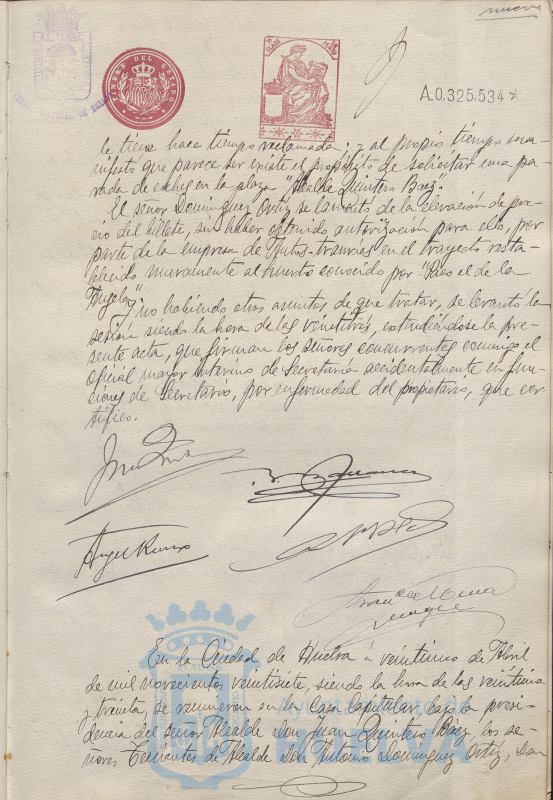 nueve
TIMBRE DEL ESTADO
CLASE
A.0.325.534*
le tiene hace tiempo reclamada; y al propio tiempo ma-
nifestó que parece ser existe el propósito de solicitar una pa-
rada de coches en la plaza "Alcalde Quintero Baez".
El señor Dominguez Ortiz se lamentó de la elevación de pre-
cio del billete, sin haber obtenido autorización para ello, por
parte de la empresa de Autos-tranvías en el trayecto resta-
blecido nuevamente al huerto conocido por "Paco el de la
Angela",
y no habiendo otros asuntos de que tratar, se levantó la
sesión siendo la hora de las veintitrés, extendiéndose la pre-
sente acta, que firman los señores concurrentes conmigo el
Oficial mayor interino de Secretaría accidentalmente en fun-
ciones de Secretario, por enfermedad del propietario, que cer-
tifico.
En la Ciudad de Huelva á veintiuno de Abril
de mil novecientos veintisiete, siendo la hora de las veintiuna
y treinta, se reunieron en la Casa Capitular, bajo la presi-
dencia del señor Alcalde Don Juan Quintero Báez, los se-
ñores Tenientes de Alcalde Don Antonio Dominguez Ortiz, Don
Ayuntamiento
HUELVA